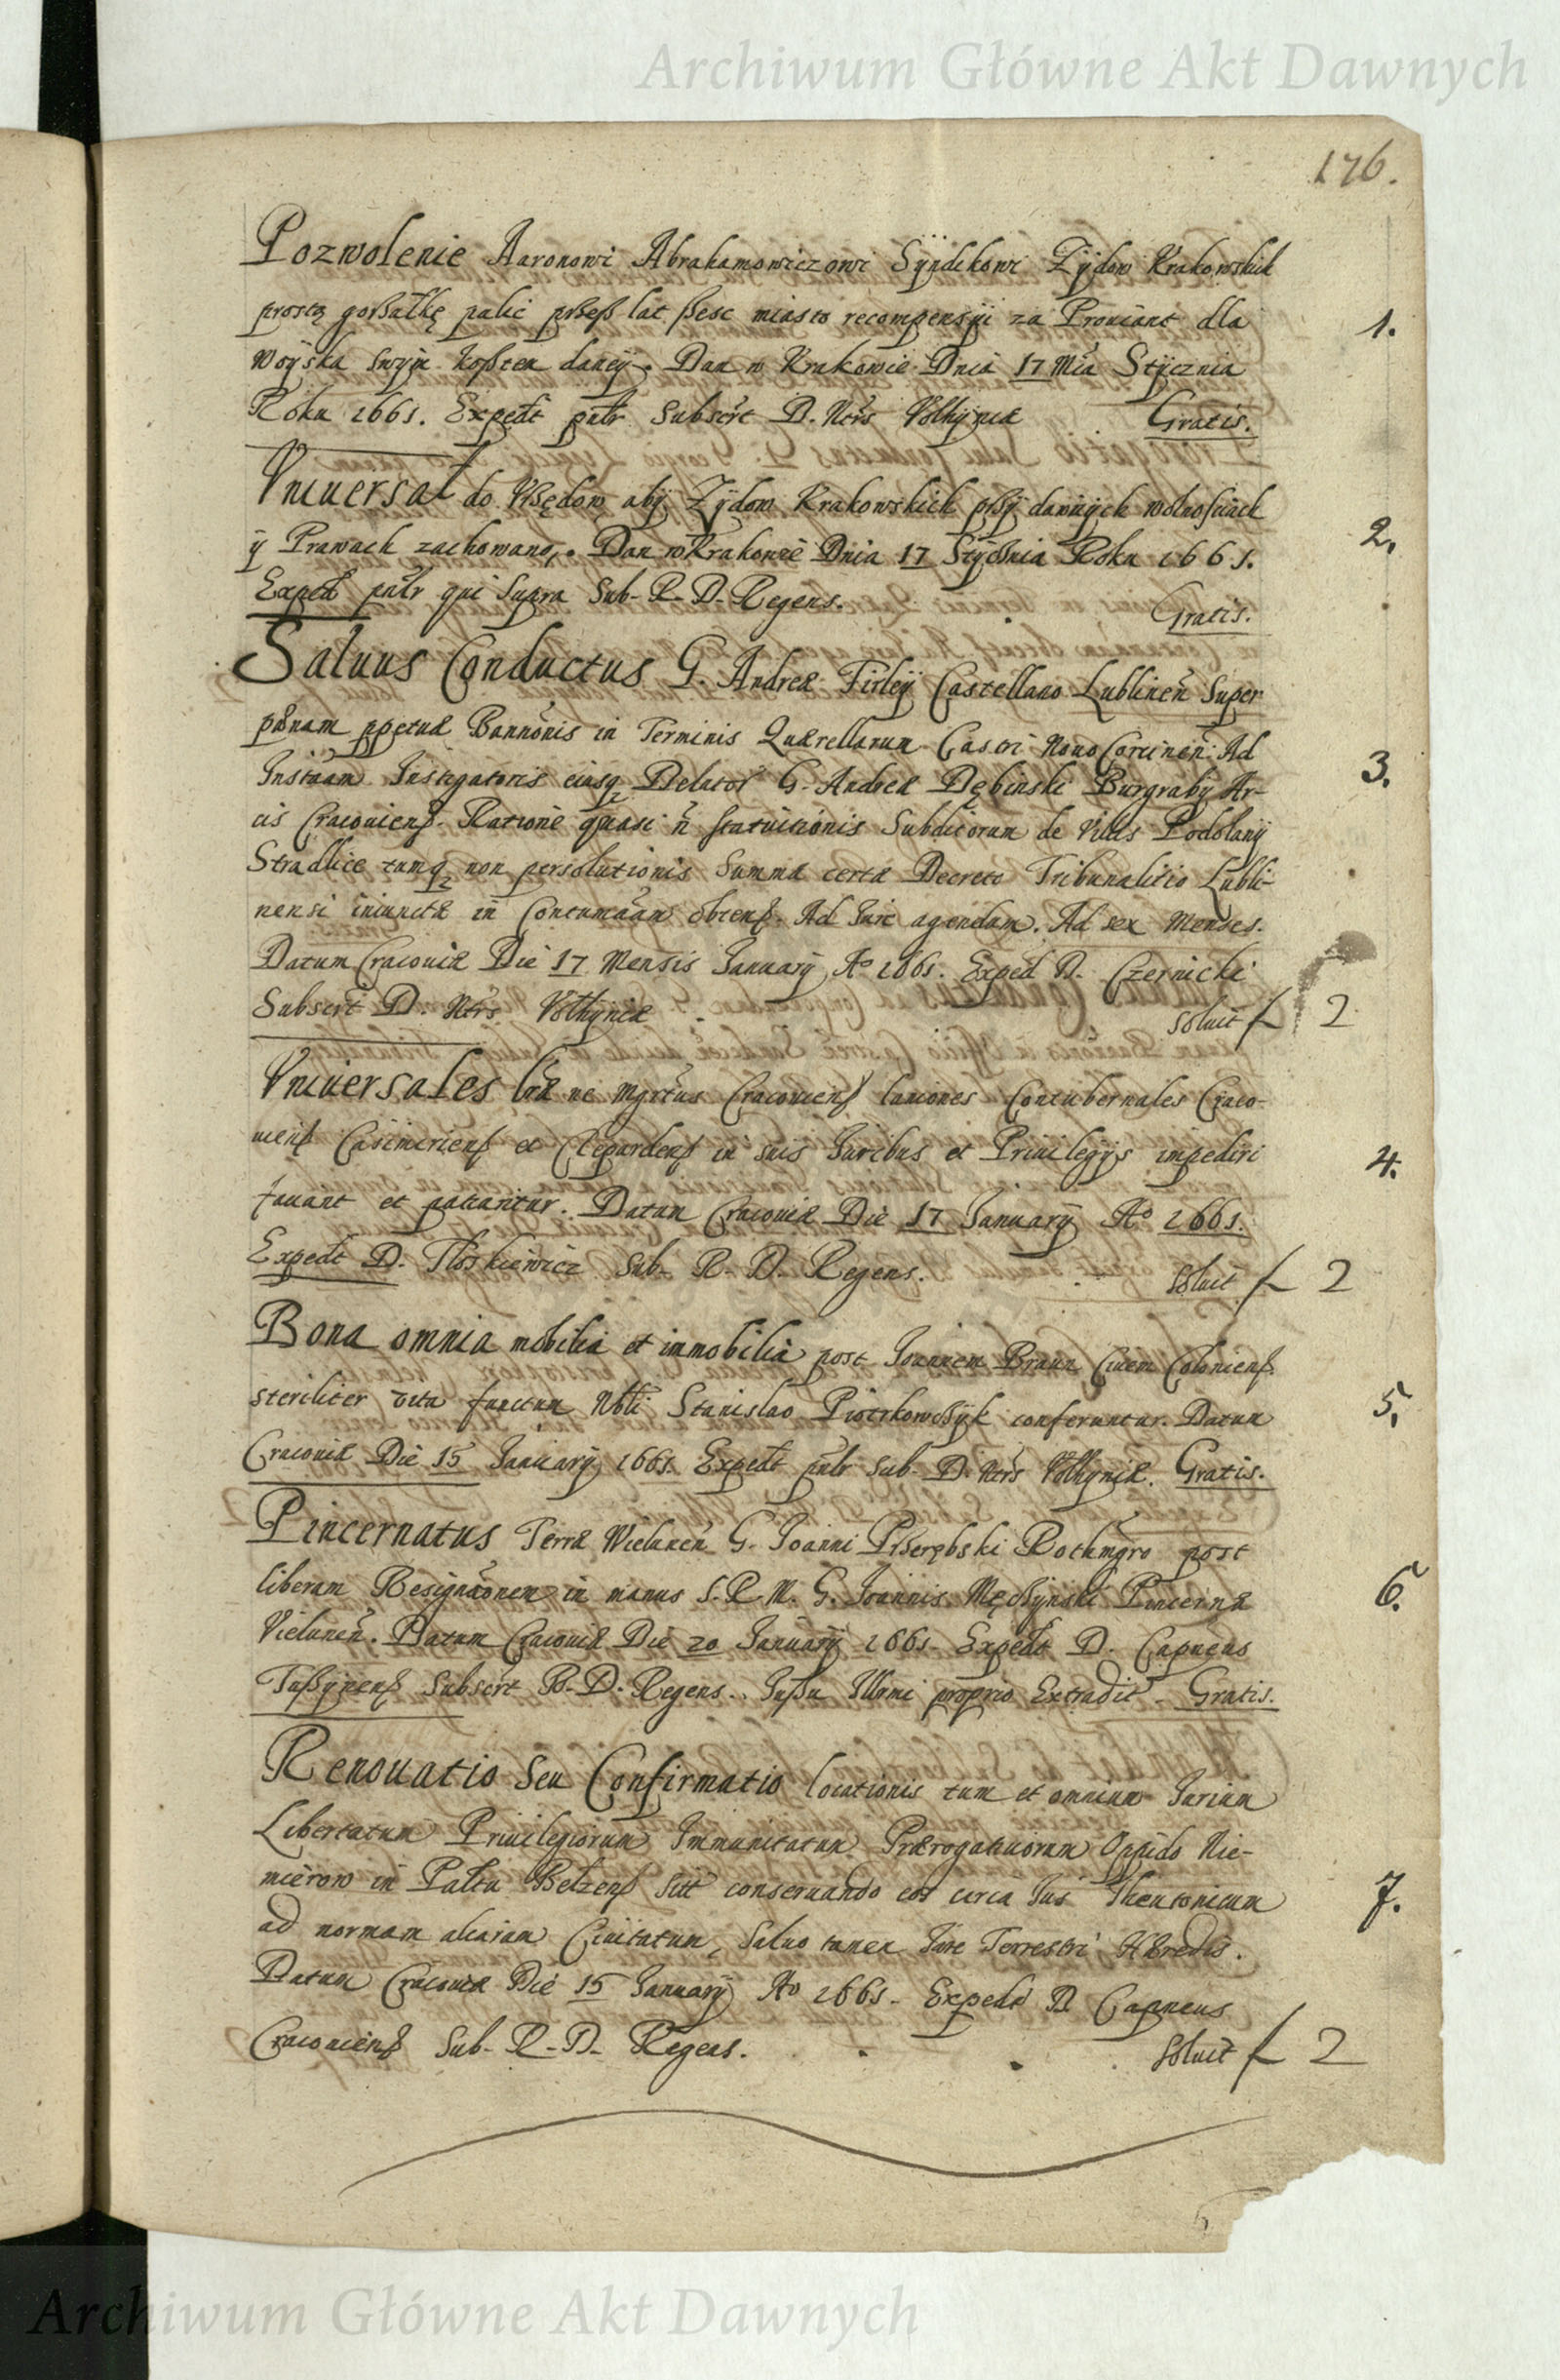 Archiwum Główne Akt Dawnych
176.
Pozwolenie Aaronowi Abrahamowiczowi Syndikowi Zÿdow Krakowskich
prostą gorßałkę palic prßeß lat ßesc miasto recompensÿi za Prouiant dla
Woÿska swÿm kosßtem daneÿ. Dan w Krakowie Dnia 17 Mca Stÿcznia
Roku 1661. Expedt pntr Subscrt D. Ntrs Volhÿniæ Gratis.
1.
Vniuersał do Vrßędow abÿ Zÿdow Krakowskich prßÿ dawnÿch wolnosciach
ÿ Prawach zachowano. Dan w Krakowie Dnia 17 Stÿcßnia Roku 1661.
Exped pntr qui supra Sub. R. D. Regens. Gratis.
2.
Saluus Conductus G. Andreæ Firleÿ Castellano Lublinen Super
pænam ppetuæ Bannonis in Terminis Quærellarum Castri Nouo Corcinen: Ad
Instaam Instigatoris eiusq Delator G. Andreæ Dębinski Burgrabÿ Ar-
cis Cracouiens. Ratione quasi n statuitionis Subditorum de Villis Podolanÿ
Stradlice tumq non persolutionis Summæ certæ Decreto Tribunalitio Lubli-
nensi iniunctæ in Contumaam obtens. Ad Iure agendum. Ad sex Menses.
Datum Cracouiæ Die 17 Mensis Januarÿ Ao 1661. Exped D. Czernicki
Subscrt D. Ntrs Volhÿniæ soluit f 2
3.
Vniuersales lræ ne Mgrtus Cracouiens laniones Contubernales Craco-
uiens Casimiriens et Clepardens in suis Iuribus et Priuilegÿs impediri
faueant et patiantur. Datum Cracouiæ Die 17 Januarÿ Ao 1661.
Expedt D. Tłoskiewicz Sub. R. D. Regens. soluit f 2
4.
Bona omnia mobilia et immobilia post Joannem Braun Ciuem Coloniens.
steriliter vita functum Nbli Stanislao Piotrkowcßÿk conferuntur. Datum
Cracouiæ Die 15 Januarÿ 1661. Expedt pntr Sub. D. Ntrs Volhyniæ. Gratis.
5.
Pincernatus Terræ Wielunen G. Joanni Prßerębski Rothmgro post
liberam Resignaonem in manus S. R. M. G. Joannis Męcßÿnski Pincernæ
Vielunen. Datum Cracouiæ Die 20 Januarÿ 1661. Expedt D. Capneus
Tußÿnens Subscrt R. D. Regens. Jußu Illrmi proprio Extradit. Gratis.
6.
Renouatio Seu Confirmatio locationis tum et omnium Iurium
Libertatum Priuilegiorum Immunitatum Prærogatiuorum Oppido Nie-
mierow in Paltu Belzens Sitt conseruando eos circa Ius Theutonicum
ad normam aliarum Ciuitatum, Saluo tamen Iure Terrestri Hæredis.
Datum Cracouiæ Die 15 Januarÿ Ao 1661. Expedt D Capneus
Cracouiens Sub. R. D. Regens. soluit f 2
7.
Archiwum Główne Akt Dawnych